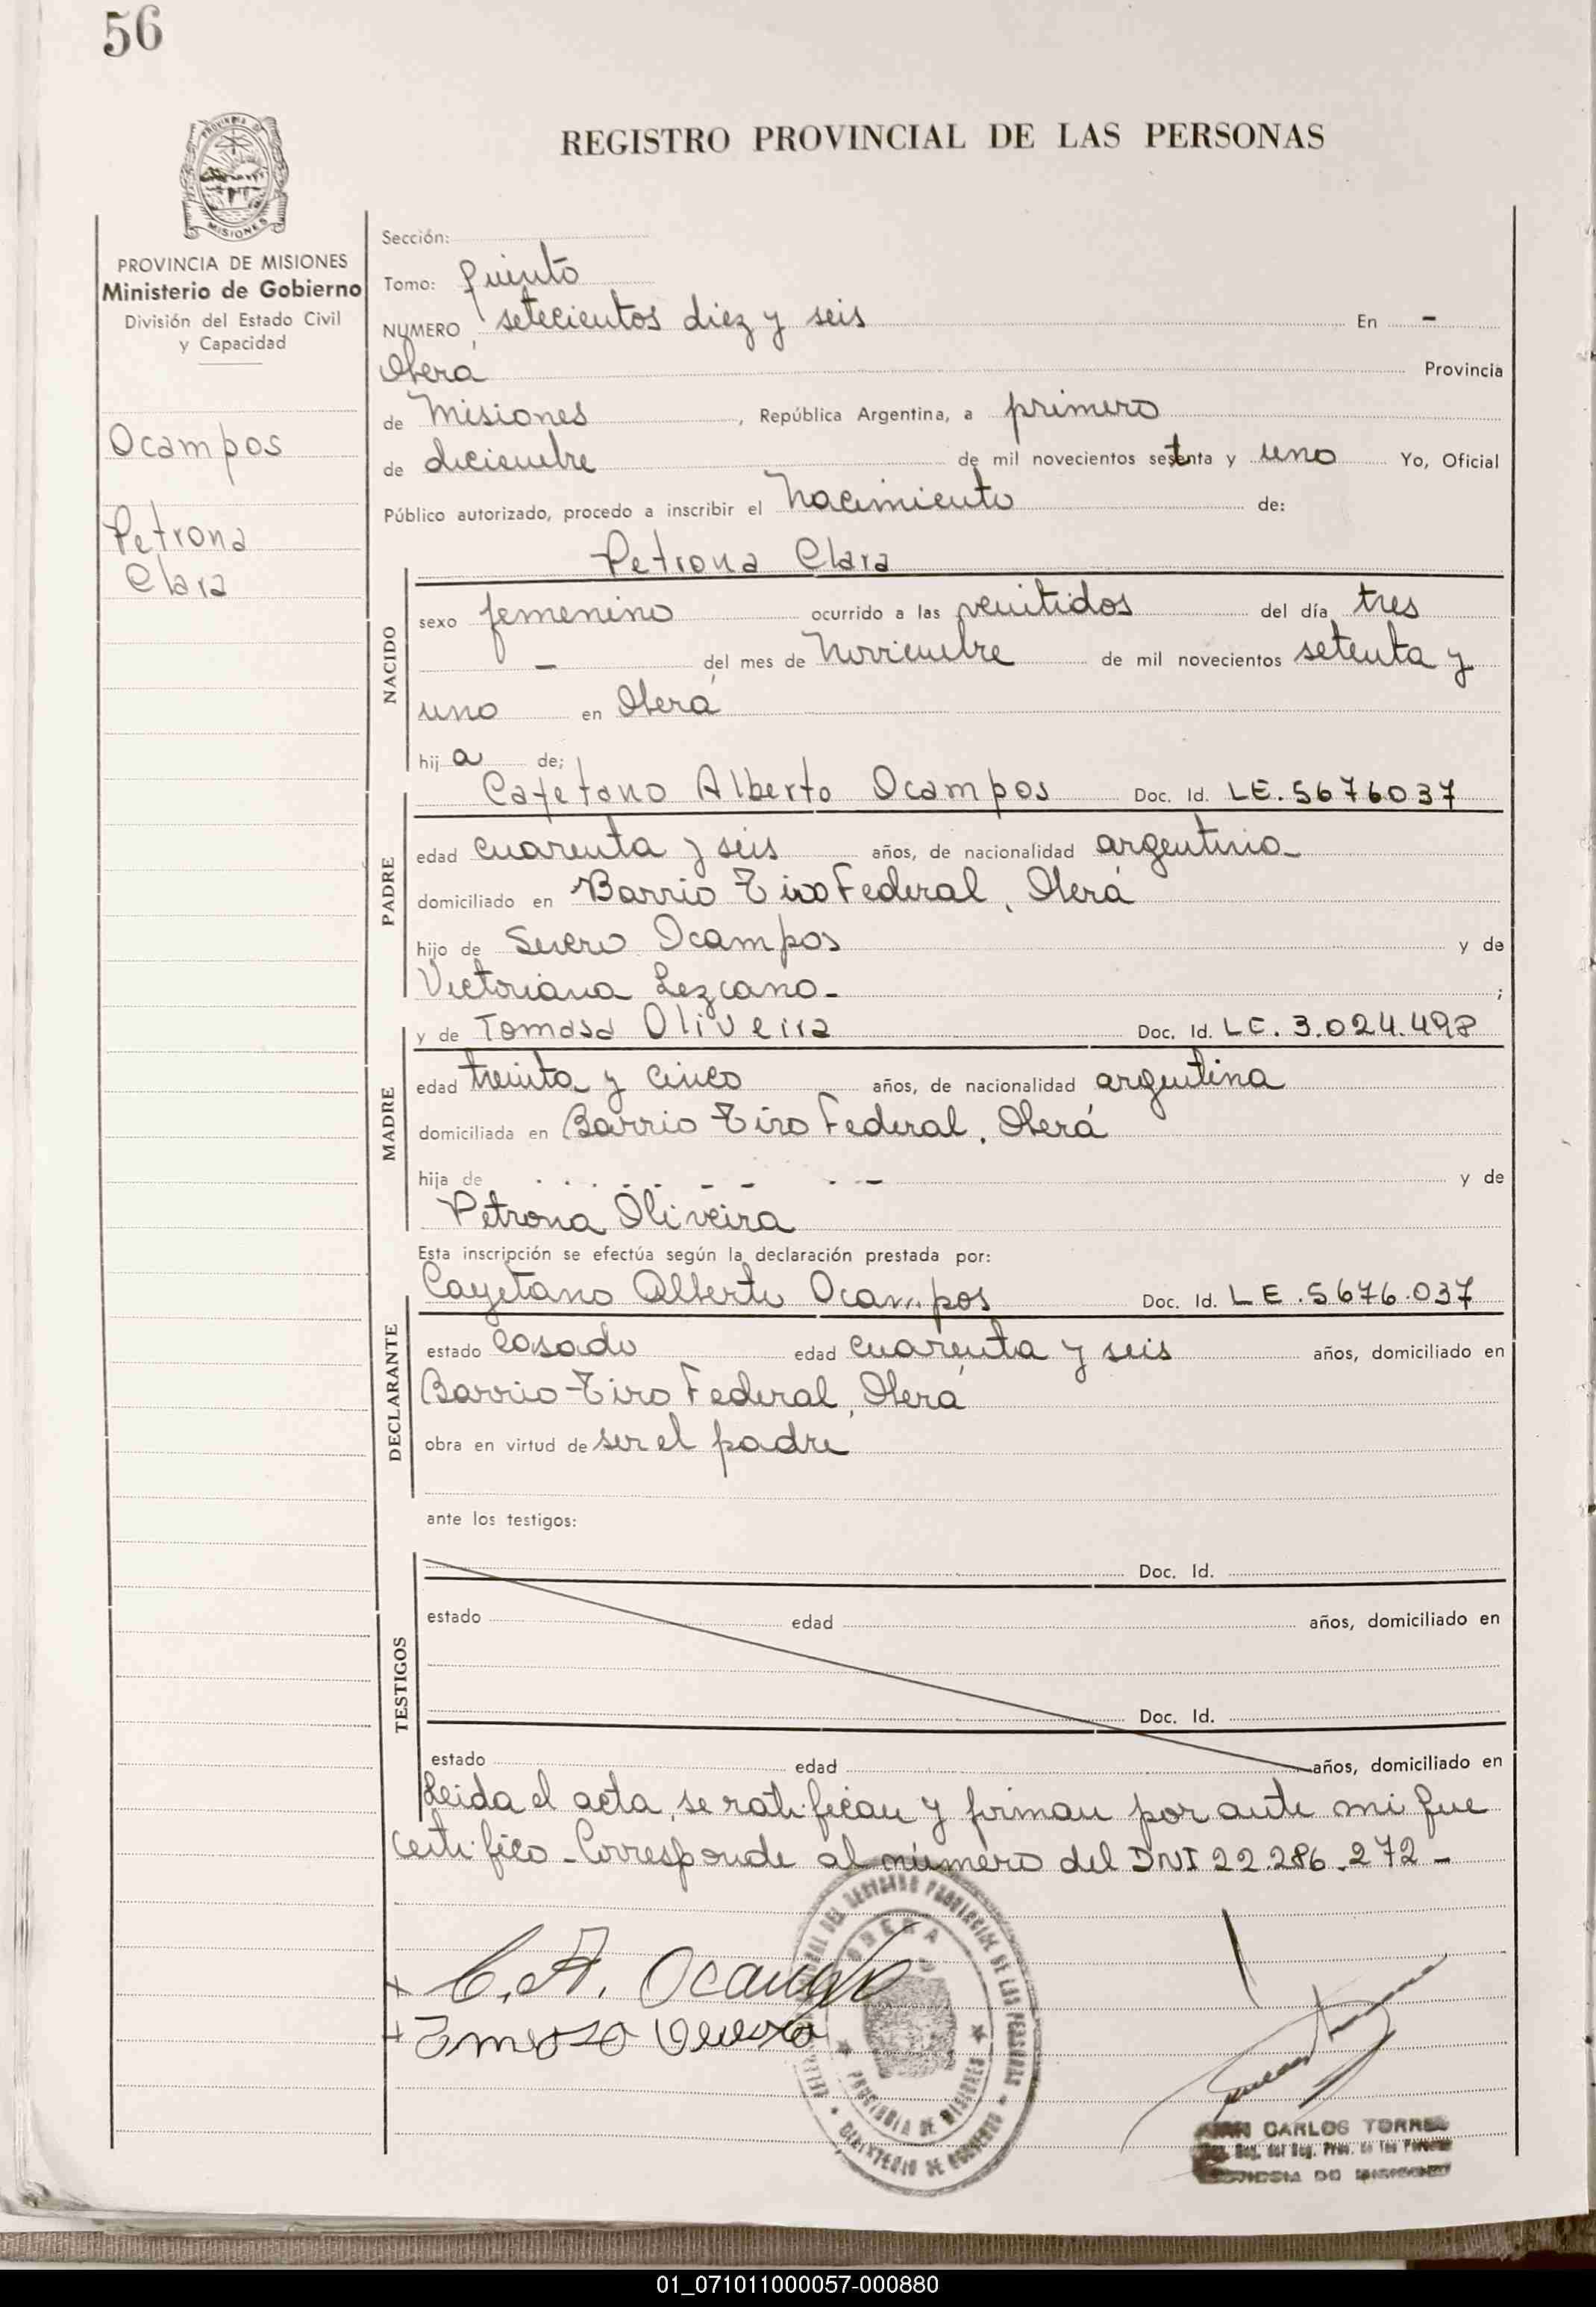 56
REGISTRO PROVINCIAL DE LAS PERSONAS
PROVINCIA DE MISIONES
Ministerio de Gobierno
División del Estado Civil
y Capacidad
Ocampos
Petrona
Clara
Sección:
Tomo: quinto
NUMERO setecientos diez y seis En -
Oberá Provincia
de Misiones, República Argentina, a primero
de diciembre de mil novecientos setenta y uno Yo, Oficial
Público autorizado, procedo a inscribir el Nacimiento de:
Petrona Clara
NACIDO
sexo femenino ocurrido a las veintidos del día tres
- del mes de Noviembre de mil novecientos setenta y
uno en Oberá
hija de;
PADRE
Cayetano Alberto Ocampos Doc. Id. LE. 5676037
edad cuarenta y seis años, de nacionalidad argentino
domiciliado en Barrio Tiro Federal, Oberá
hijo de Ocampos y de
Victoriana Lezcano- ;
MADRE
y de Tomasa Oliveira Doc. Id. LC. 3.024.498
edad treinta y cinco años, de nacionalidad argentina
domiciliada en Barrio Tiro Federal, Oberá
hija de . . . . . - - . - y de
Petrona Oliveira
Esta inscripción se efectúa según la declaración prestada por:
DECLARANTE
Cayetano Alberto Ocampos Doc. Id. LE.5676.037
estado Casado edad cuarenta y seis años, domiciliado en
Barrio Tiro Federal, Oberá
obra en virtud de ser el padre
ante los testigos:
TESTIGOS
Doc. Id.
estado edad años, domiciliado en
Doc. Id.
estado edad años, domiciliado en
Leida el acta, se ratifican y firman por ante mi que
certifico - Corresponde al número del DNI 22.286.272 -
C. A. Ocampo
OBERA
PROVINCIA DE MISIONES
MINISTERIO DE GOBIERNO
JUAN CARLOS TORRES
01_071011000057-000880